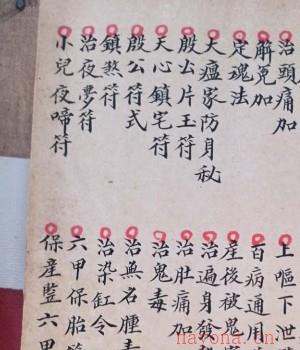 治頭痛加
解冤加
定魂法
大瘟家防身秘
殷公片玉符
天心鎮宅符
殷公符式
鎮煞符
治夜夢符
小兒夜啼符
上嘔下
百病通用
產後被鬼
治遍身發
治肚痛加
治鬼毒
治無名腫毒
治染缸令
六甲保胎符
保產暨六甲
nayona.cn